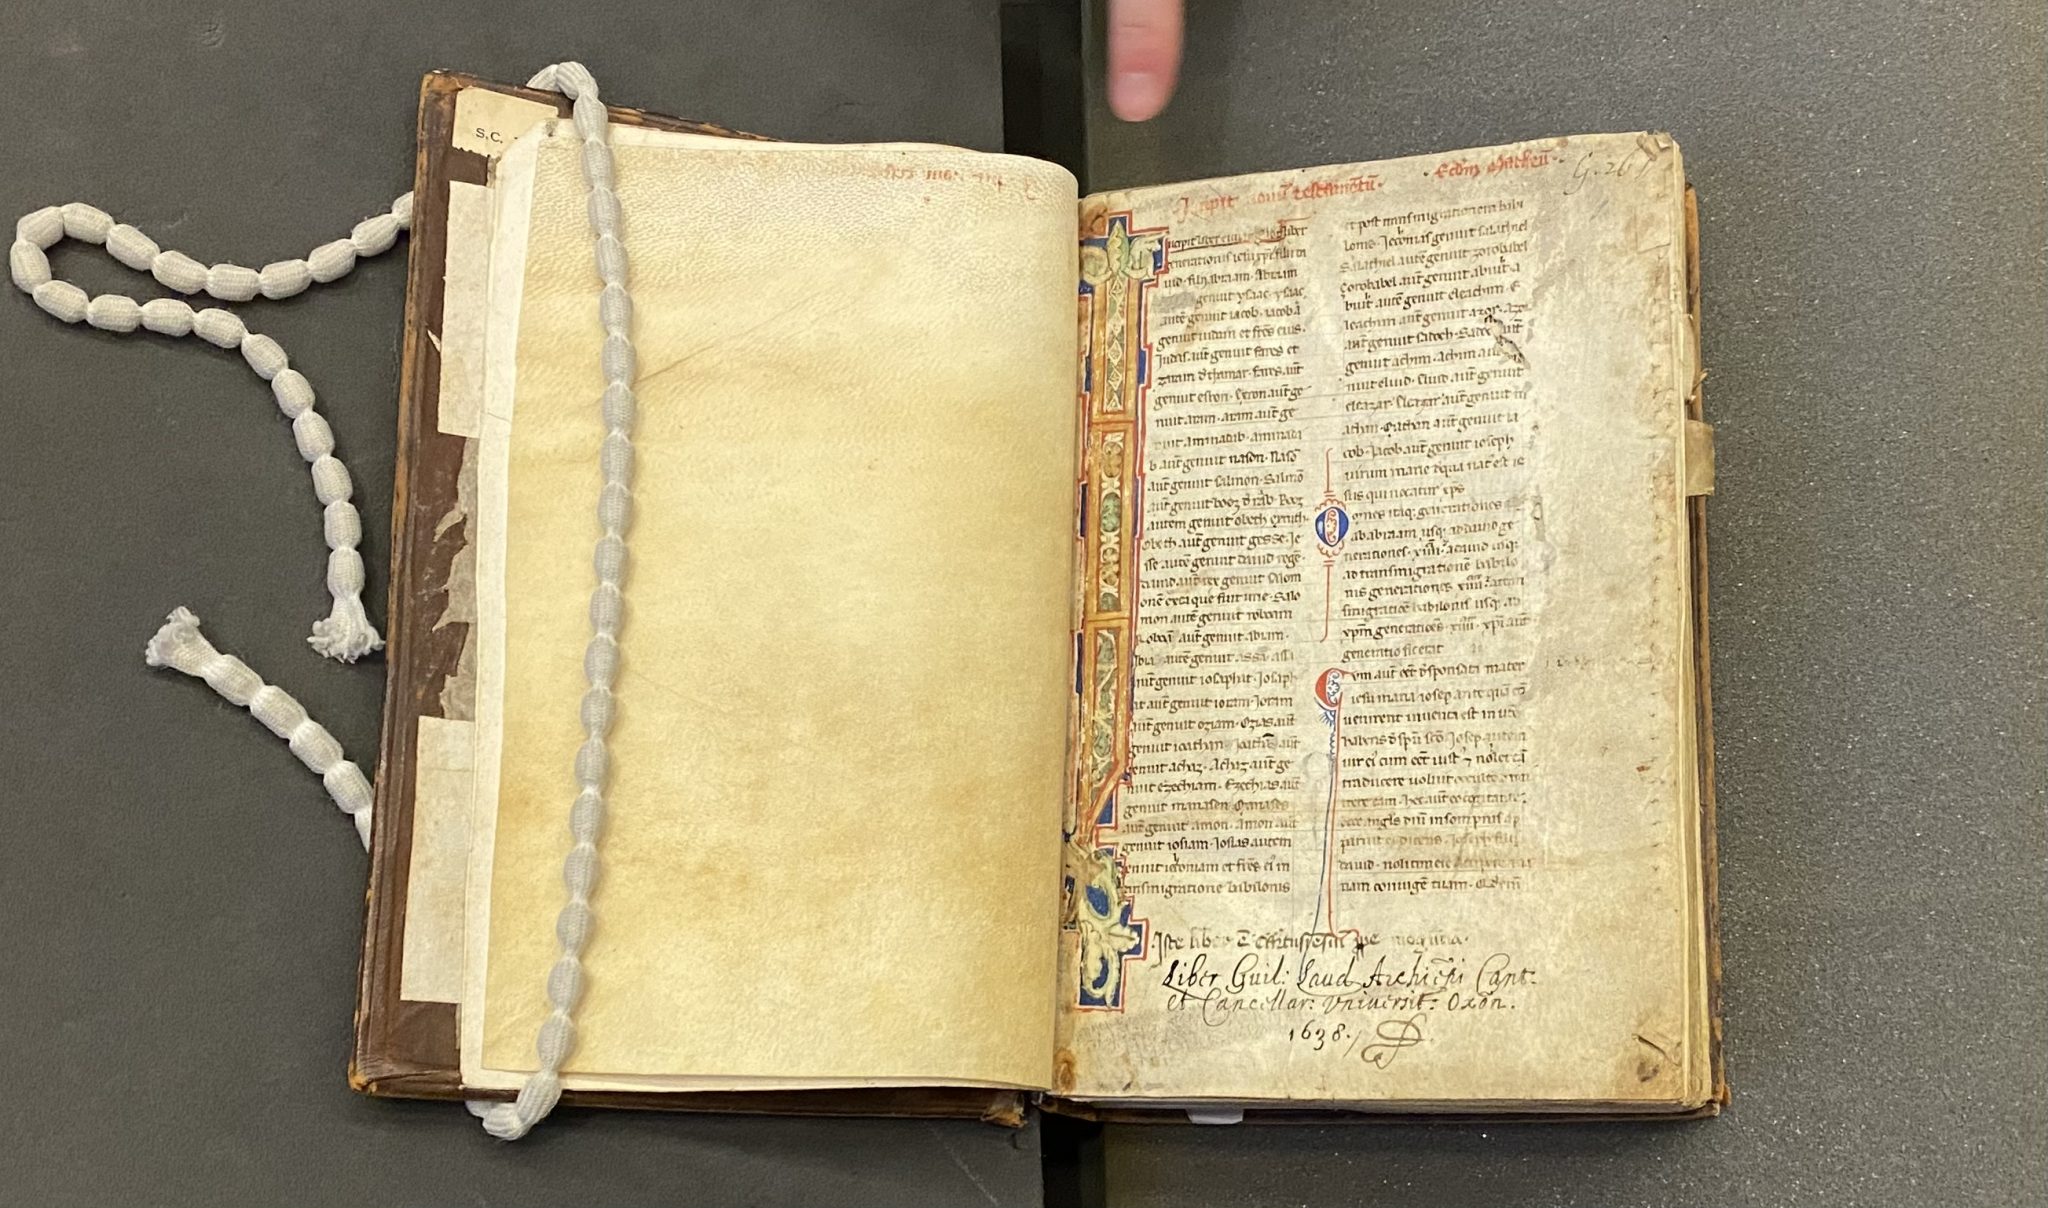 S.C.
Incipit nouū testamentū. Scdm Matheū.
G. 26
generationis ieiu xpi filii da
uid. filii abraam. Abraam
genuit ysaac. ysaac
autē genuit iacob. iacob aū
genuit iudam et frēs eius.
Iudas aūt genuit fares et
zaram d thamar. fares aūt
genuit esron. Esron aūt ge
nuit aram. aram aūt ge
nuit aminadab. aminada
b aūt genuit nason. Nasō
aūt genuit salmon. Salmō
aūt genuit booz d raab. Booz
autem genuit obeth ex ruth.
Obeth aūt genuit gesse. Ie
sse autē genuit dauid regē.
dauid aūt rex genuit salom
onē ex ea que fuit urie. Salo
mon autē genuit roboam
Roboā aūt genuit abiam.
Abia autē genuit assa. assa
aūt genuit iosaphat. Iosaph
at aūt genuit ioram. Ioram
aūt genuit oziam. Ozias aūt
genuit ioathan. Ioathā aūt
genuit achaz. Achaz aūt ge
nuit ezechiam. Ezechias aūt
genuit manasen. Manases
aūt genuit amon. Amon aūt
genuit iosiam. Iosias autem
genuit ieconiam et frēs ei in
transmigratione babilonis
et post transmigrationem babi
lonis. Ieconias genuit salathiel
Salathiel autē genuit zorobabel
Zorobabel aūt genuit abiut. a
biut autē genuit eleachim. E
leachim aūt genuit azor. Azor
aūt genuit sadoch. Sadoc aūt
genuit achim. achim aūt ge
nuit eliud. Eliud aūt genuit
eleazar. Eleazar aūt genuit m
athan. Mathan aūt genuit ia
cob. Iacob aūt genuit ioseph
uirum marie de qua nat est ie
sus qui uocatur xps
Omnes itaq generationes
ab abraam usq ad dauid ge
nerationes. xiiii. a dauid usq
ad transmigrationē babilo
nis generationes xiiii. et a tran
smigratiōe babilonis usq ad
xpm generatiōes. xiiii. xpi aūt
generatio sic erat
Cum aūt eēt desponsata mater
iesu maria iosep ante quā cō
uenirent inuenta est in utō
habens d spū scō. Iosep autem
uir ei cum eēt iust 7 nolet eā
traducere uoluit occulte dimi
ttere eam. hec aūt eo cogitante
ecce angls dni in sompnis ap
paruit ei dicens. Ioseph fili
dauid. noli timere accipere ma
riam coniugē tuam. Qd enī
Iste liber ē Cartusiēsiū ꝓpe mogūtia.
Liber Guil: Laud Archiepi Cant:
et Cancellar: Vniversit: Oxon.
1638.